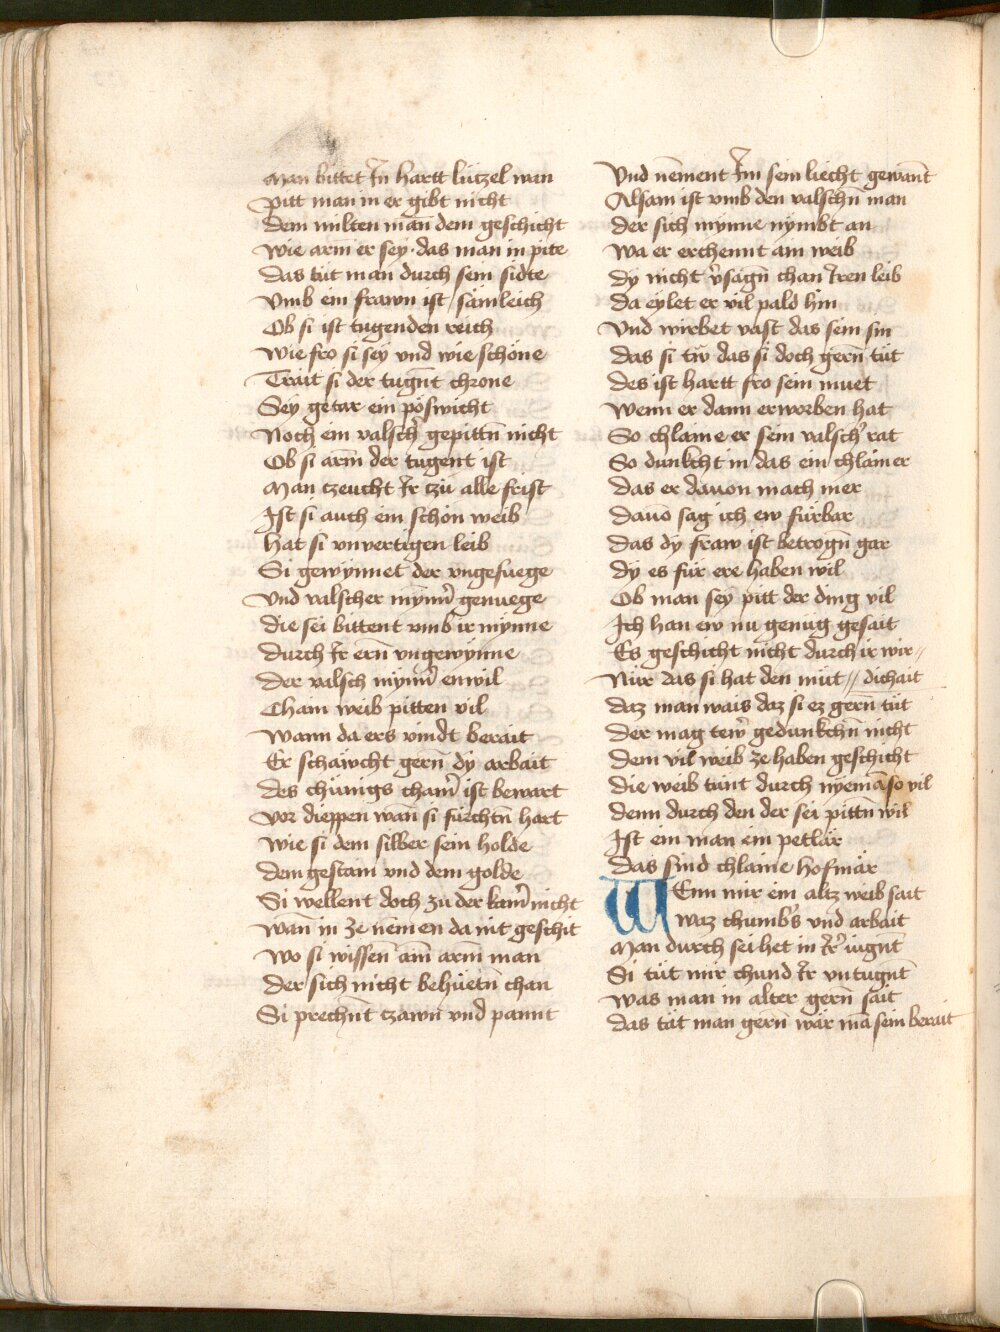 Man bittet Jn hartt lützel wan
pitt man in er gibt nicht
dem milten man̄ dem geschicht
wie arm̄ er sey · das man in pite
das tüt man durch sein sidte
Vmb ein frawn ist / sämleich
Ob si ist tugenden reich
Wie fro si sey vnd wie schöne
Trait si der tugn̄t chrone
Sey getar ein pöswicht
Noch ein valsch̓ gepittn̄ nicht
Ob si arm̄ der tugent ist
Man tzeucht Jr tzü alle frist
Jst si auch ein schön weib
Hat si vnvertigen leib
Si gewynnet der vngefuege
Vnd valscher mynn̓ genuege
die sei bittent vmb ir mynne
durch Jr ern̄ vngewynne
der valsch mynn̓ enwil
Chain weib pitten vil
Wann da ers vindt berait
Er schäwcht gern̄ dy arbait
des chünigs cham̓ ist bewart
vor dieppen wan̄ si fürchtn̄ hart
wie si dem silber sein holde
dem gestain vnd dem golde
Si wellent doch zu der kam̓ nicht
wan̄ in ze nemen da nit geschit
wo si wissen ain arm̄ man
der sich nicht behüetn̄ chan
Si prechn̄t tzawn vnd pannt
Vnd nēment Jm sein liecht gewan̄t
Alsam ist vmb den valschn̄ man
der sich mynne nymbt an
wa er erchennt ain weib
dy nicht v̓sagn̄ chan Jren leib
da eylet er vil pald hin
Vnd wirbet vast das sein sin
das si tw̄ das si doch gern̄ tüt
des ist hartt fro sein muet
wenn er dann erworben hat
So chlaine er sein valsch̓ rat
So dunkcht in das ein chlainer
das er dauon mach mer
dauō sag ich ew fürbar
das dy fraw ist betrogn̄ gar
dy es für ere haben wil
Ob man sey pitt der ding vil
Ich han ew nu genug gesait
Es geschicht nicht durch ir wir〃
Nür das si hat den müt 〃 dichait
daz man wais daz si ez gern̄ tüt
der mag tew̓ gedunkchn̄ nicht
dem vil weib ze haben geschicht
die weib tünt durch nyemā so vil
denn durch den der sei pittn̄ wil
Jst ein man ein petlär
das sind chlaine hofmär
WEnn mir ein altz weib sait
waz chumb̓s vnd arbait
Man durch sei het in Jr̓ iugn̄t
Si tüt mir chund Jr vntugn̄t
was man in alter gern̄ sait
das tät man gern̄ wär mā sein berait